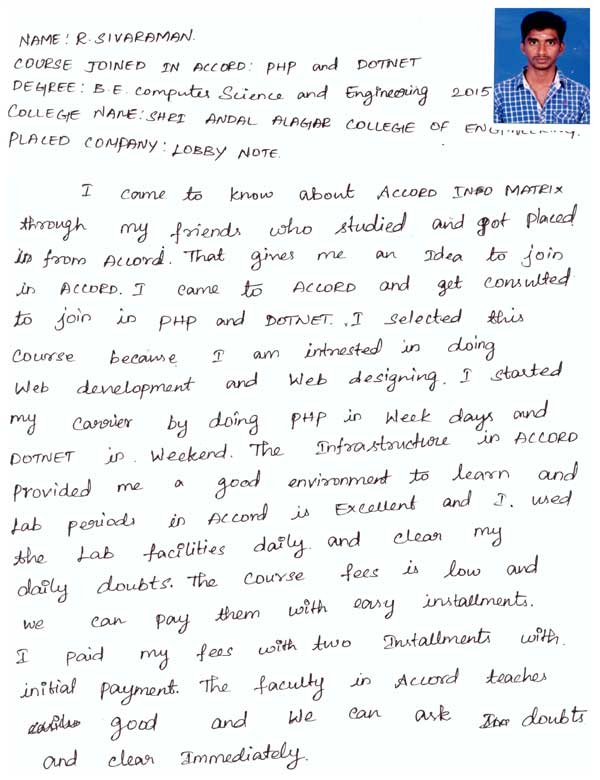 NAME: R. SIVARAMAN.
COURSE JOINED IN ACCORD: PHP and DOTNET
DEGREE: B.E. Computer Science and Engineering 2015
COLLEGE NAME: SHRI ANDAL ALAGAR COLLEGE OF ENGINEERING.
PLACED COMPANY: LOBBY NOTE.
I came to know about ACCORD INFO MATRIX
through my friends who studied and got placed
in from Accord. That gives me an Idea to join
in ACCORD. I came to ACCORD and get consulted
to join in PHP and DOTNET. I selected this
course because I am intrested in doing
Web development and Web designing. I started
my carrier by doing PHP in Week days and
DOTNET in Weekend. The Infrastructure in ACCORD
provided me a good environment to learn and
Lab periods in Accord is Excellent and I used
the Lab facilities daily and clear my
daily doubts. The course fees is low and
we can pay them with easy installments.
I paid my fees with two Installments with
initial payment. The faculty in Accord teaches
good and We can ask doubts
and clear Immediately.